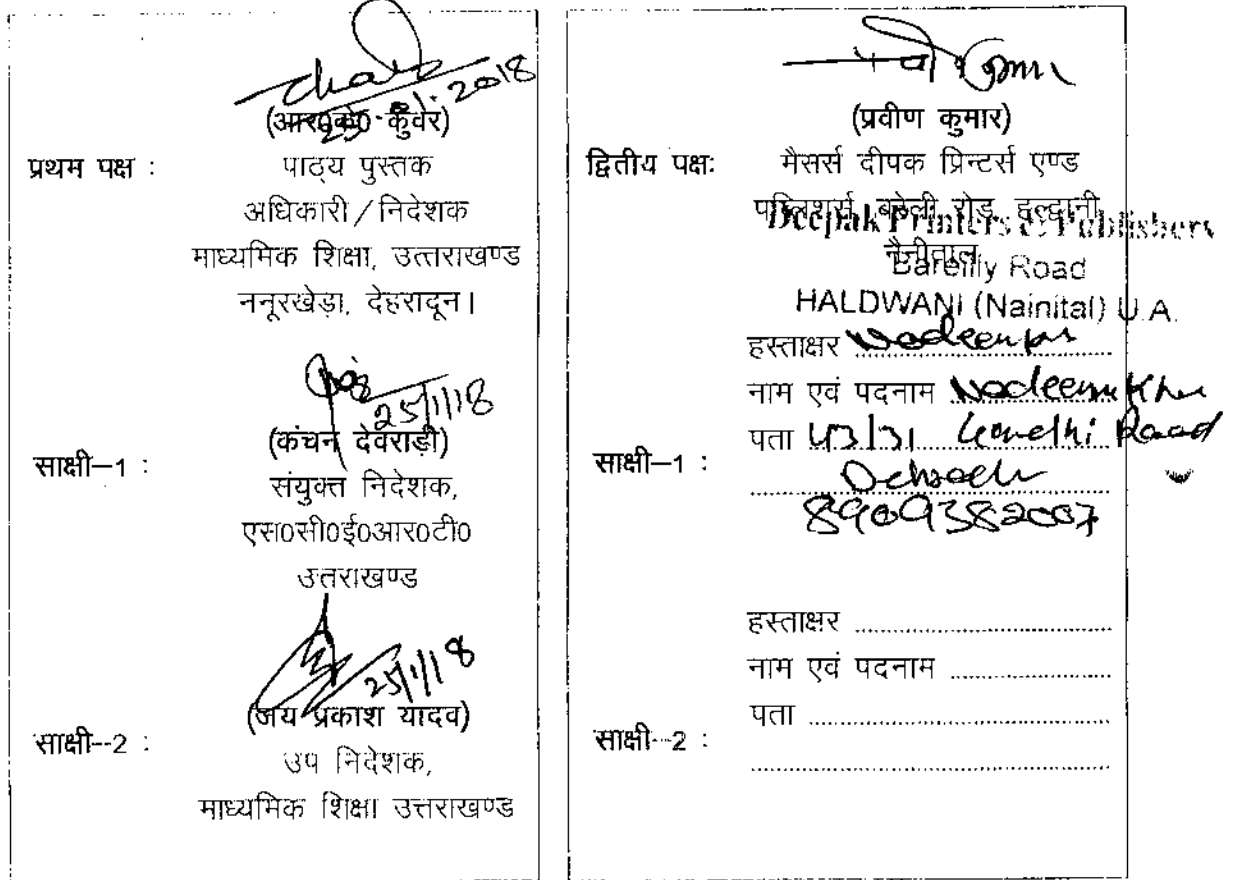 25.01.2018
(आर0के0 कुंवर)
प्रथम पक्ष :
पाठ्य पुस्तक
अधिकारी / निदेशक
माध्यमिक शिक्षा, उत्तराखण्ड
ननूरखेड़ा, देहरादून।
25/1/18
(कंचन देवराड़ी)
साक्षी-1 :
संयुक्त निदेशक,
एस0सी0ई0आर0टी0
उत्तराखण्ड
25/1/18
(जय प्रकाश यादव)
साक्षी--2 :
उप निदेशक,
माध्यमिक शिक्षा उत्तराखण्ड
(प्रवीण कुमार)
द्वितीय पक्षः
मैसर्स दीपक प्रिन्टर्स एण्ड
पब्लिशर्स, बरेली रोड, हल्द्वानी
नैनीताल
Deepak Printers & Publishers
Bareilly Road
HALDWANI (Nainital) U.A.
हस्ताक्षर
नाम एवं पदनाम Nadeem Khan
पता 43/31 Gandhi Road
साक्षी-1 :
8909382007
हस्ताक्षर
नाम एवं पदनाम
पता
साक्षी--2 :